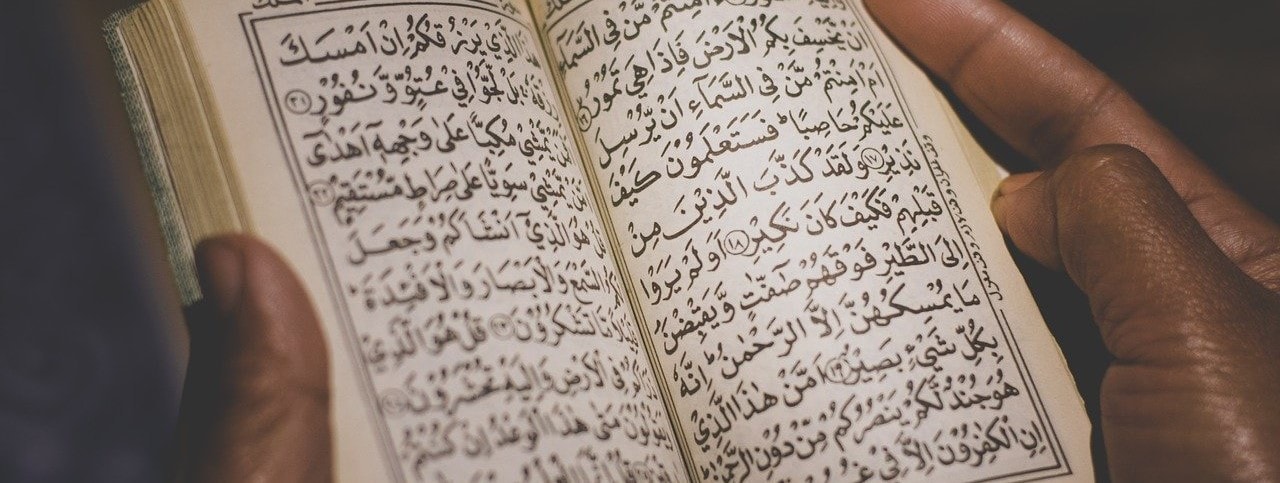 ءَاَمِنْتُمْ مَّنْ فِي السَّمَآءِ
اَنْ يَّخْسِفَ بِكُمُ الْاَرْضَ فَاِذَا هِيَ تَمُوْرُ ۝١٦
اَمْ اَمِنْتُمْ مَّنْ فِي السَّمَآءِ اَنْ يُّرْسِلَ
عَلَيْكُمْ حَاصِبًا ؕ فَسَتَعْلَمُوْنَ كَيْفَ
نَذِيْرِ ۝١٧ وَلَقَدْ كَذَّبَ الَّذِيْنَ مِنْ
قَبْلِهِمْ فَكَيْفَ كَانَ نَكِيْرِ ۝١٨ اَوَلَمْ يَرَوْا
اِلَى الطَّيْرِ فَوْقَهُمْ صٰٓفّٰتٍ وَّيَقْبِضْنَ
مَا يُمْسِكُهُنَّ اِلَّا الرَّحْمٰنُ ؕ اِنَّهٗ
بِكُلِّ شَيْءٍ بَصِيْرٌ ۝١٩ اَمَّنْ هٰذَا الَّذِيْ
هُوَ جُنْدٌ لَّكُمْ يَنْصُرُكُمْ مِّنْ دُوْنِ الرَّحْمٰنِ ؕ
اِنِ الْكٰفِرُوْنَ اِلَّا فِيْ
الَّذِيْ يَرْزُقُكُمْ اِنْ اَمْسَكَ
رِزْقَهٗ ۚ بَلْ لَّجُّوْا فِيْ عُتُوٍّ وَّنُفُوْرٍ ۝٢١
يَّمْشِيْ مُكِبًّا عَلٰى وَجْهِهٖٓ اَهْدٰٓى
اَمَّنْ يَّمْشِيْ سَوِيًّا عَلٰى صِرَاطٍ مُّسْتَقِيْمٍ ۝٢٢
قُلْ هُوَ الَّذِيْٓ اَنْشَاَكُمْ وَجَعَلَ
لَكُمُ السَّمْعَ وَالْاَبْصَارَ وَالْاَفْـِٕدَةَ ؕ
مَّا تَشْكُرُوْنَ ۝٢٣ قُلْ هُوَ الَّذِيْ
فِي الْاَرْضِ وَاِلَيْهِ تُحْشَرُوْنَ ۝٢٤
وَيَقُوْلُوْنَ مَتٰى هٰذَا الْوَعْدُ اِنْ كُنْتُمْ